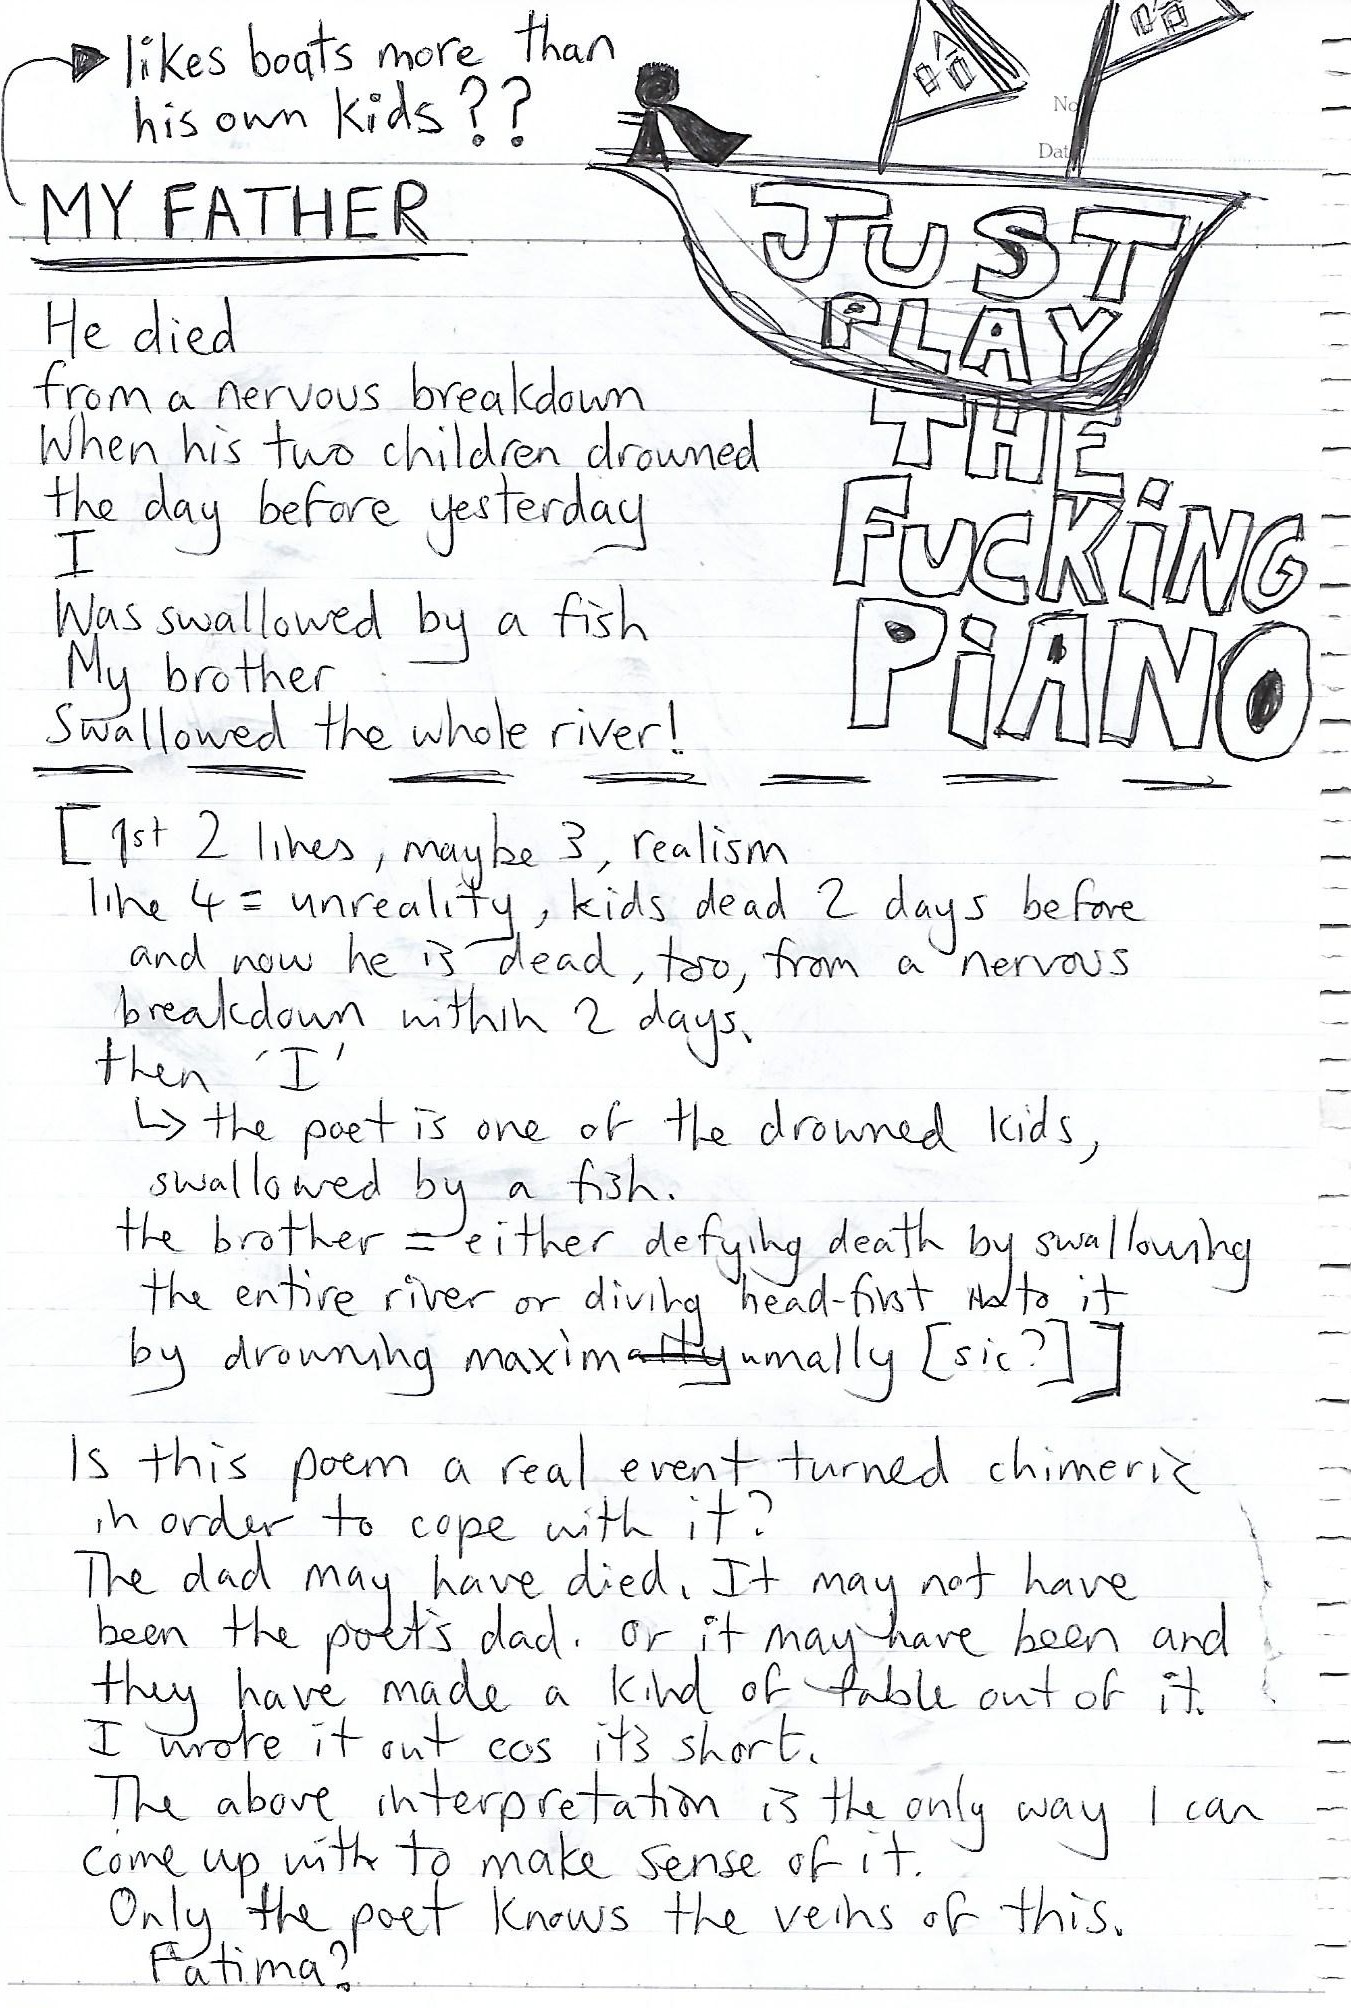 likes boats more than
his own kids??
No
Dat
MY FATHER
JUST
PLAY
THE
FUCKING
PIANO
He died
from a nervous breakdown
When his two children drowned
the day before yesterday
I
Was swallowed by a fish
My brother
Swallowed the whole river!
[1st 2 lines, maybe 3, realism
line 4 = unreality, kids dead 2 days before
and now he is dead, too, from a nervous
breakdown within 2 days.
then 'I'
↳ the poet is one of the drowned kids,
swallowed by a fish.
the brother = either defying death by swallowing
the entire river or diving head-first to it
by drowning maximumally [sic?]]
Is this poem a real event turned chimeric
in order to cope with it?
The dad may have died. It may not have
been the poet's dad. or it may have been and
they have made a kind of fable out of it.
I wrote it out cos it's short.
The above interpretation is the only way I can
come up with to make sense of it.
Only the poet knows the veins of this.
Fatima?